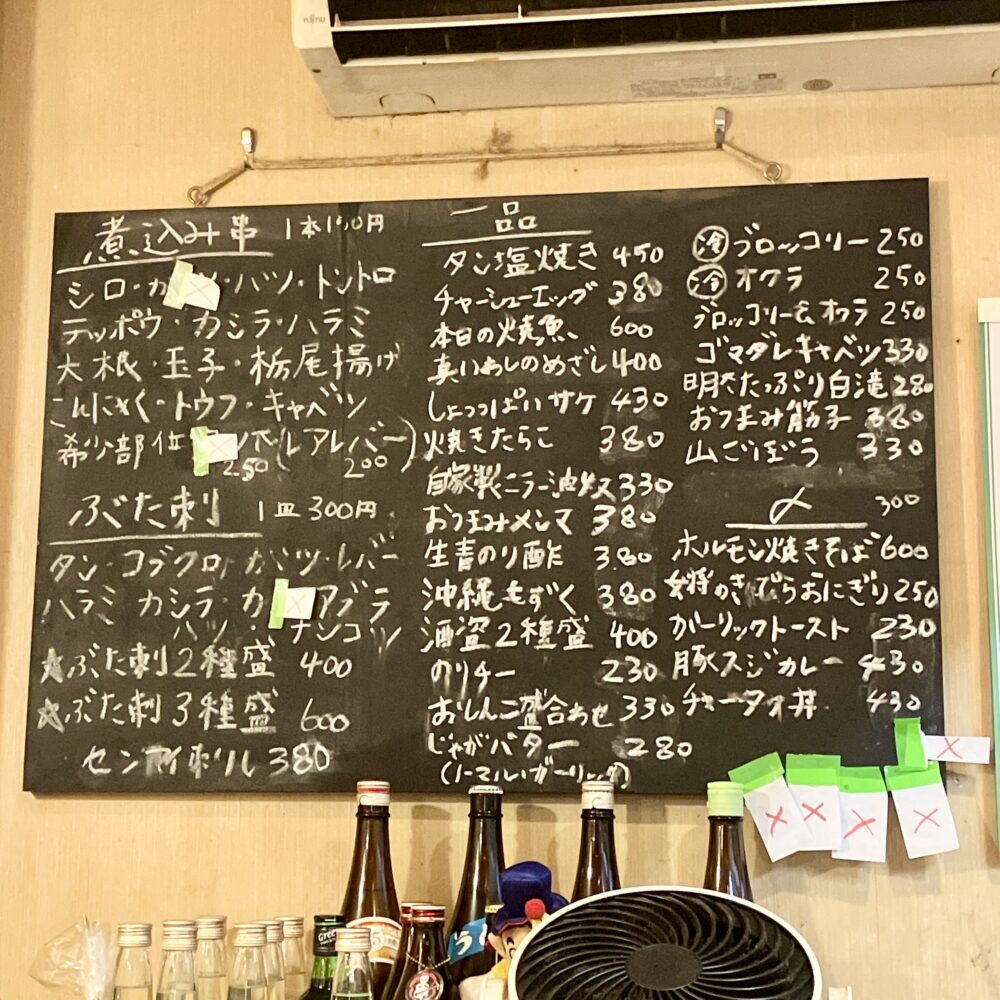 FUJITSU
煮込み串 1本150円
シロ・ガ・ハツ・トントロ
テッポウ・カシラ・ハラミ
大根・玉子・栃尾揚げ
こんにゃく・トウフ・キャベツ
希少部位 250 (レアレバー) 200
ぶた刺 1皿300円
タン・コブクロ・ガツ・レバー
ハラミ カシラ・カ アブラ
ハツ ナンコツ
☆ぶた刺2種盛 400
☆ぶた刺3種盛 600
センマイ刺し 380
一品
タン塩焼き 450
チャーシューエッグ 380
本日の焼魚 600
真いわしのめざし 400
しょっぱいサケ 430
焼きたらこ 380
自家製ニラ油 330
おつまみメンマ 380
生青のり酢 380
沖縄もずく 380
酒盗2種盛 400
のりチー 230
おしんこ盛合わせ 330
じゃがバター 280
(ノーマル・ガーリック)
冷 ブロッコリー 250
冷 オクラ 250
ブロッコリー&オクラ 250
ゴマダレキャベツ 330
明太たっぷり白滝 280
おつまみ筋子 380
山ごぼう 330
〆 300
ホルモン焼きそば 600
女将のきむらおにぎり 250
ガーリックトースト 230
豚スジカレー 430
チャータマ丼 430